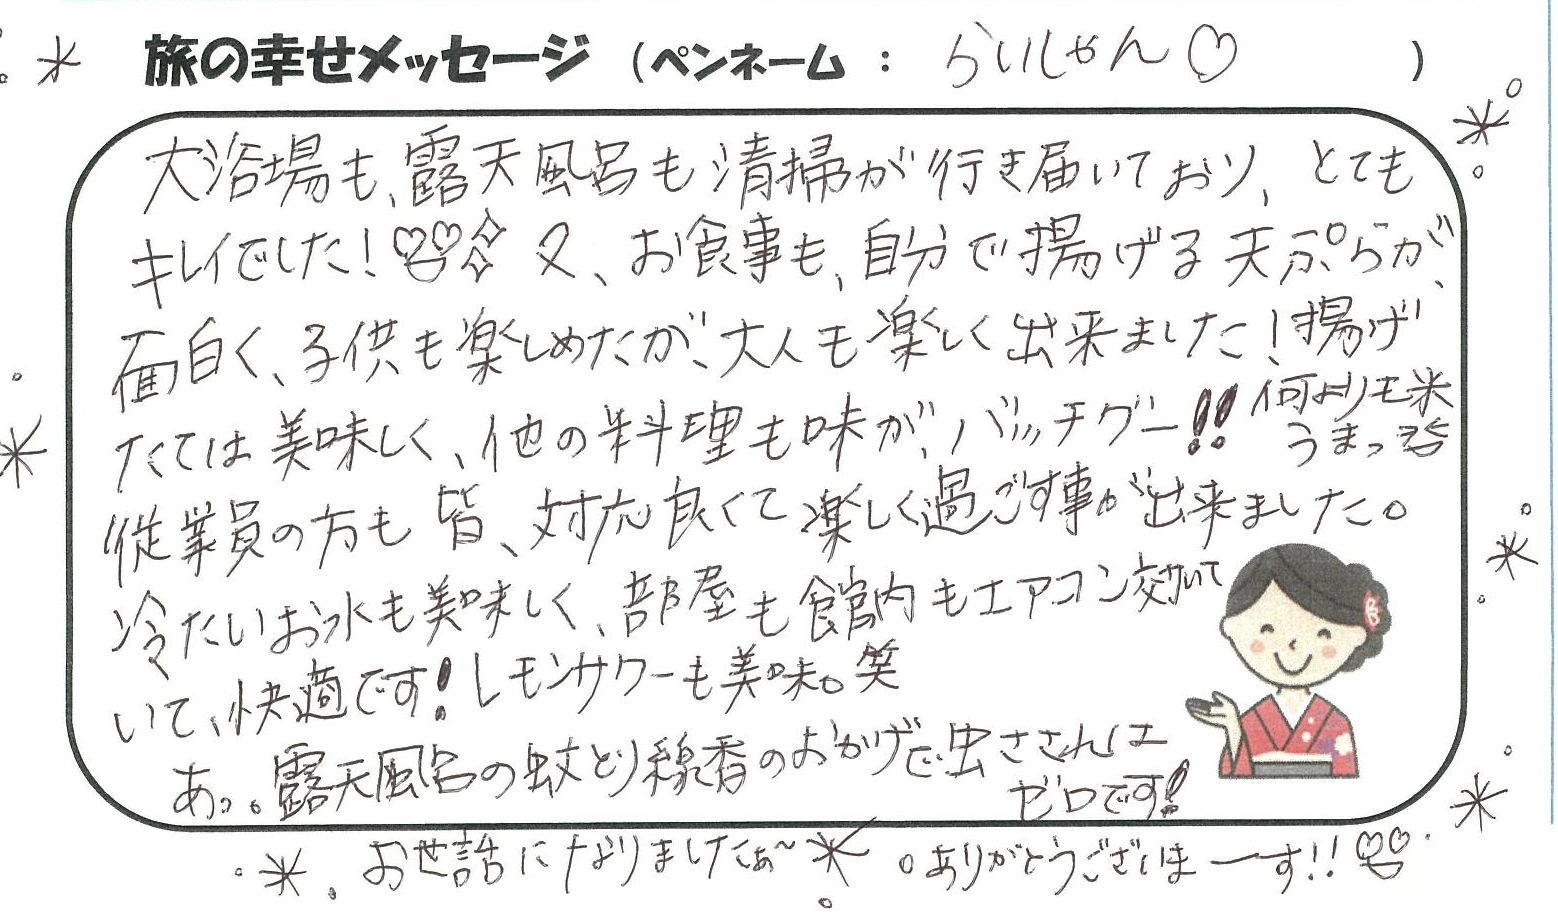 旅の幸せメッセージ (ペンネーム : らいしゃん♡ )
大浴場も、露天風呂も清掃が行き届いており、とても
キレイでした! 又、お食事も、自分で揚げる天ぷらが、
面白く、子供も楽しめたが、大人も楽しく出来ました!揚げ
たては美味しく、他の料理も味が、バッチグー!!何よりも米
うまっ
従業員の方も皆、対応良くて楽しく過ごす事が出来ました。
冷たいお水も美味しく、部屋も館内もエアコン効いて
いて、快適です!レモンサワーも美味。笑
あっ。露天風呂の蚊とり線香のおかげで虫さされは
ゼロです!
お世話になりましたぁ~
ありがとうございまーす!!